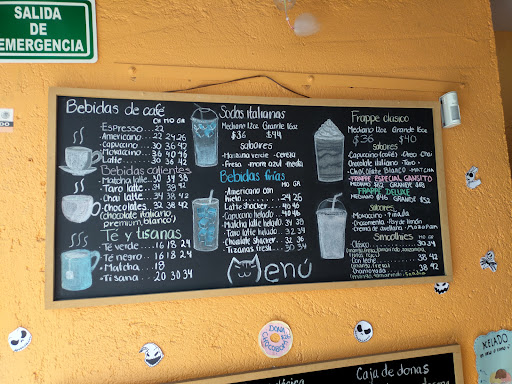 SALIDA
DE
EMERGENCIA
Bebidas de café
CH MD GR
Espresso 22
Americano 22 24 26
Capuccino 30 36 42
Mokaccino 36 40 46
Latte 30 36 42
Bebidas calientes
Matcha latte 34 38 42
Taro latte 34 38 42
Chai latte 34 38 42
chocolates 38 42
(chocolate italiano,
premium, blanco)
Té y tisanas
Té verde 16 18 24
Té negro 16 18 24
Matcha 18
Tisana 20 30 34
Sodas italianas
Mediano 12oz Grande 16oz
$36 $44
sabores
Manzana verde - Cereza
Fresa - mora azul - media
Bebidas frías
MD GR
Americano con
hielo 24 26
Latte Shocker 40 46
Capuccino helado 40 46
Matcha latte helado 32 34
Taro latte helado 32 34
Chocolate Shocker 32 36
Tizanas fresh 30 34
Menú
Frappe clasico
Mediano 12oz Grande 16oz
$36 $40
sabores
Capuccino (café) - Oreo - Chai
Chocolate italiano - Taro
Chocolate Blanco - MATCHA
FRAPPE ESPECIAL GANSITO
FRAPPE DELUXE
MEDIANO $46 GRANDE $52
Sabores
Mokaccino - Pinada
Crema de avellana
Smoothies
MD GR
Clásico 30 34
Con leche 38 42
Chamoyada 38 42
DONA
HELADO
Caja de donas